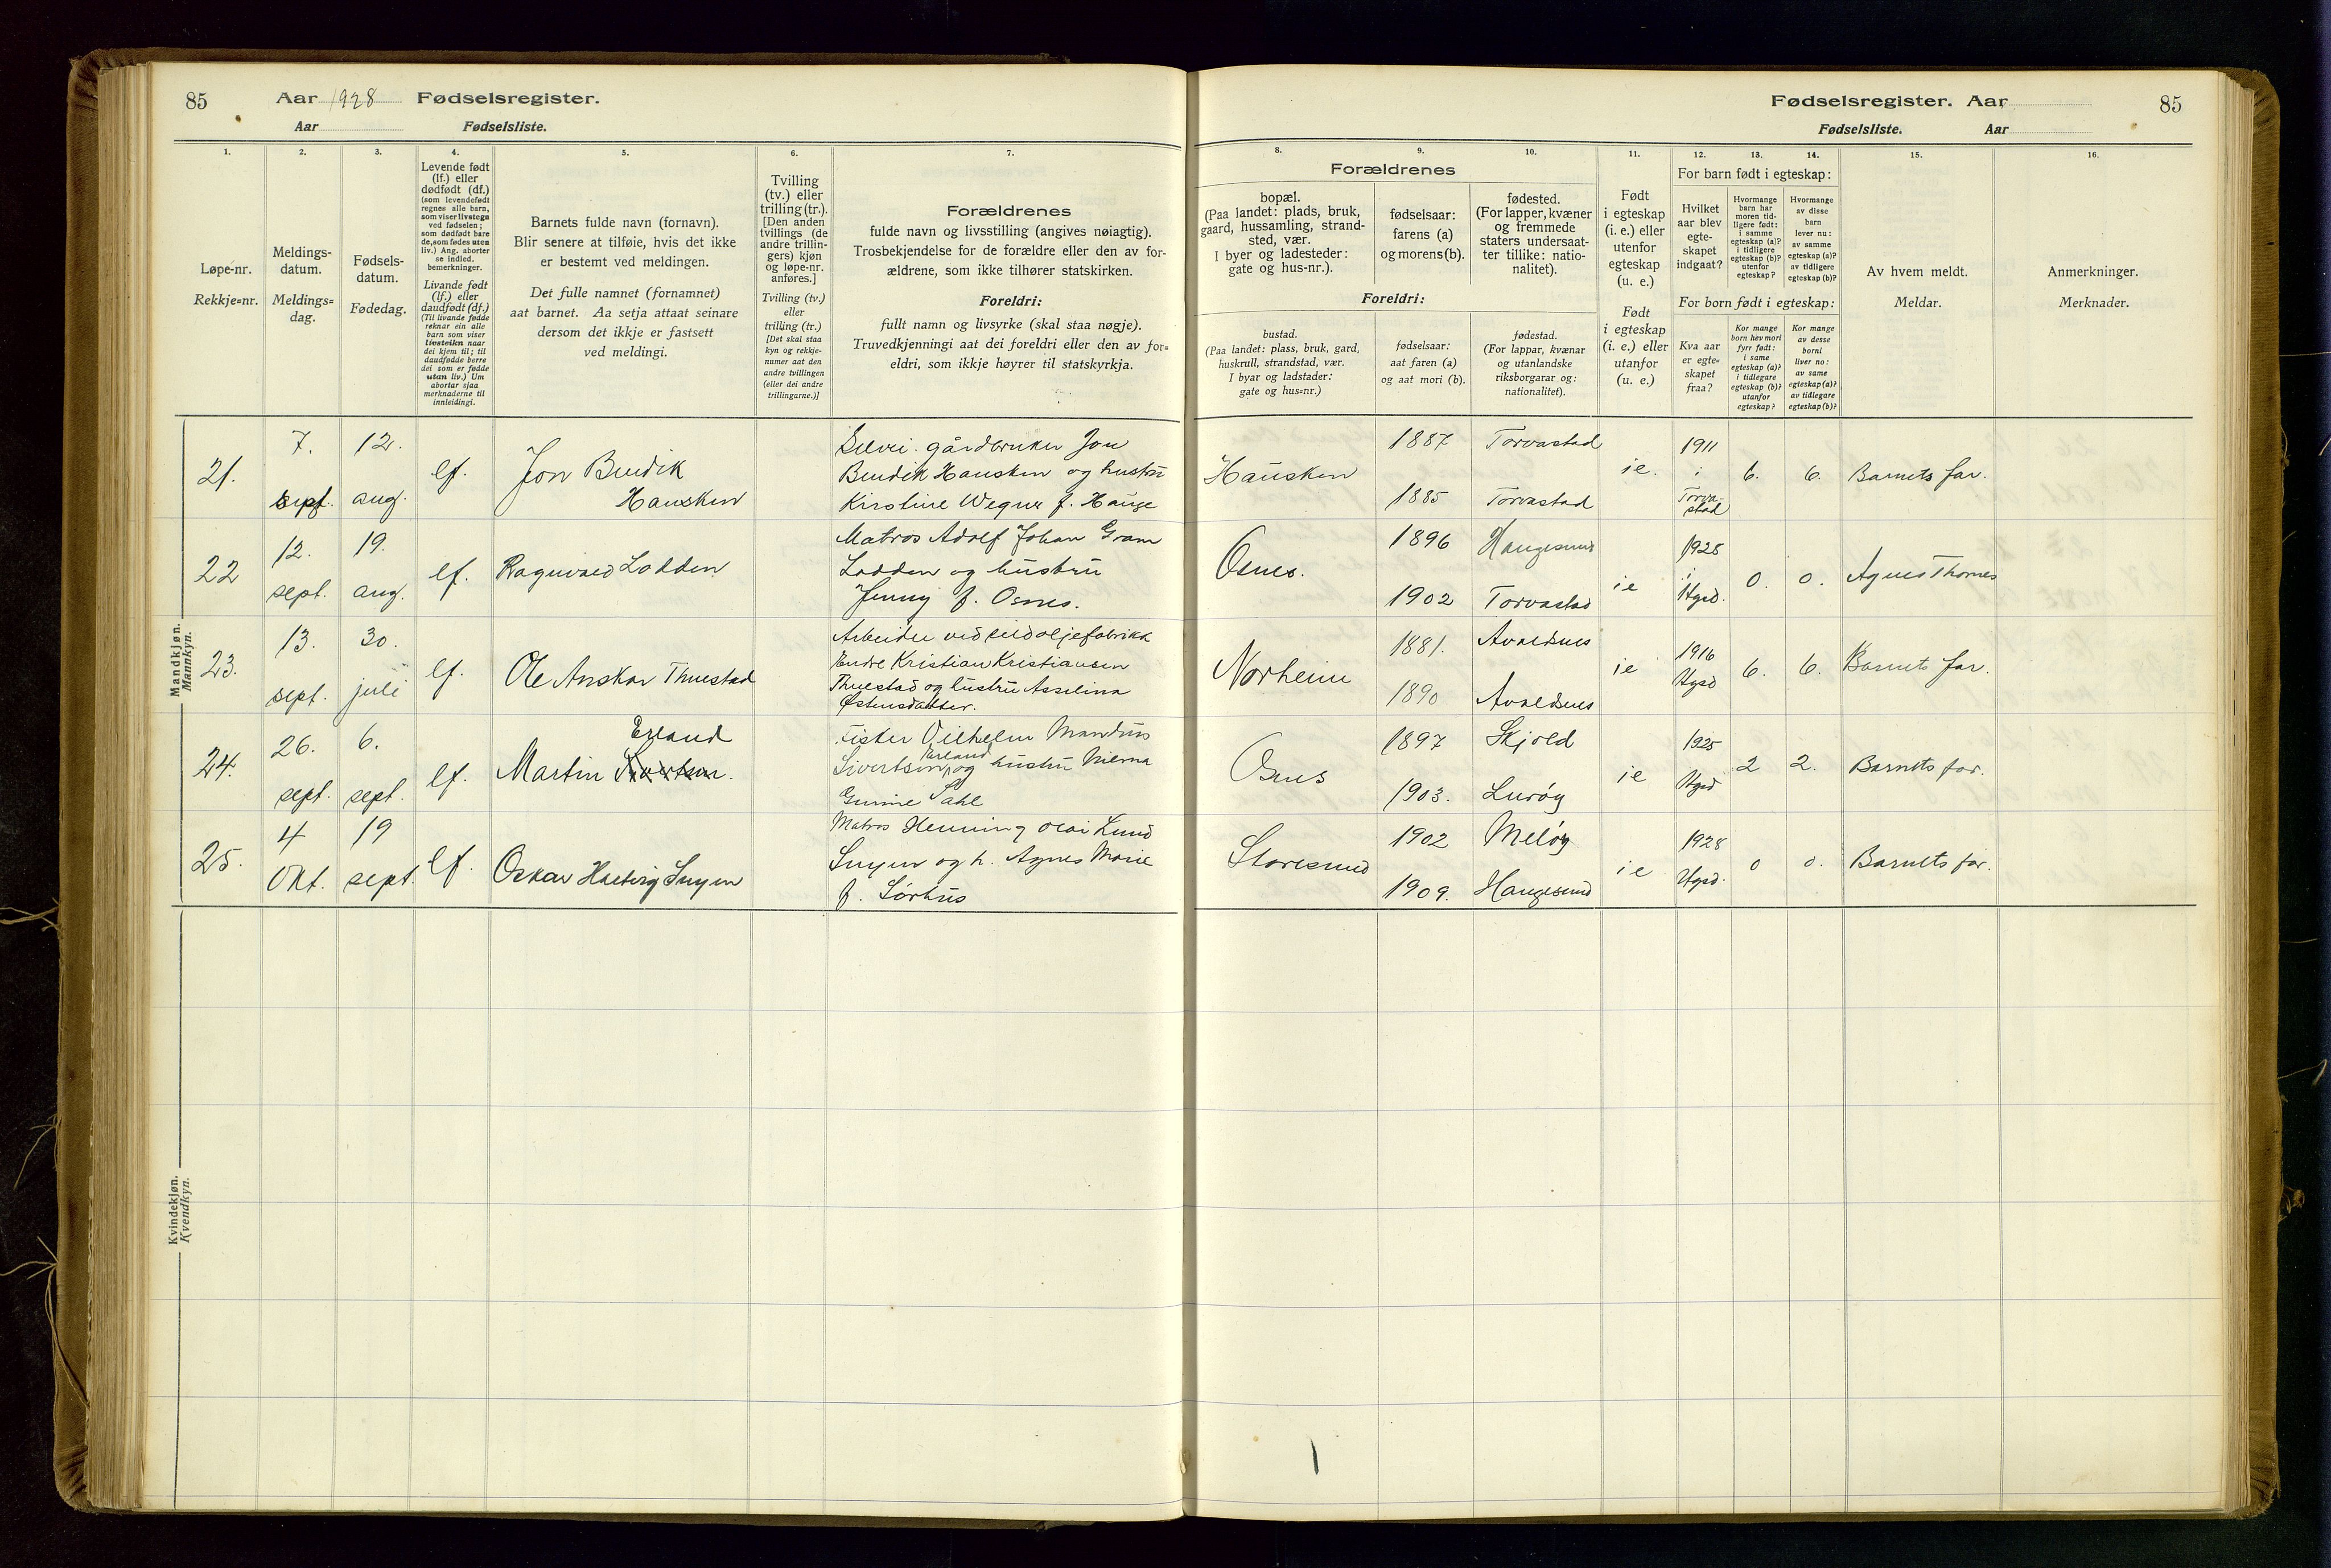 85 Aar 1928 Fødselsregister.
Aar Fødselsliste.
Fødselsregister. Aar 85
Fødselsliste. Aar
1. 2. 3. 4. 5. 6. 7.
Løpe-nr.
Rekkje=nr.
Meldings-
datum.
Meldings=
dag.
Fødsels-
datum.
Fødedag.
Levende født
(lf.) eller
dødfødt (df.)
(som levendefødt
regnes alle barn,
som viser livstegn
ved fødselen;
som dødfødt bare
de, som fødes uten
liv.) Ang. aborter
se indled.
bemerkninger.
Livande født
(lf.) eller
daudfødt (df.)
(Til livande fødde
reknar ein alle
barn som viser
livsteikn naar
dei kjem til; til
daudfødde berre
dei som er fødde
utan liv.) Um
abortar sjaa
merknaderne til
innleidingi.
Barnets fulde navn (fornavn).
Blir senere at tilføie, hvis det ikke
er bestemt ved meldingen.
Det fulle namnet (fornamnet)
aat barnet. Aa setja attaat seinare
dersom det ikkje er fastsett
ved meldingi.
Tvilling
(tv.) eller
trilling (tr.).
[Den anden
tvillings (de
andre trillin-
gers) kjøn
og løpe-nr.
anføres.]
Tvilling (tv.)
eller
trilling (tr.)
[Det skal staa
kyn og rekkje-
numer aat den
andre tvillingen
(eller dei andre
trillingarne.)]
Forældrenes
fulde navn og livsstilling (angives nøiagtig).
Trosbekjendelse for de forældre eller den av for-
ældrene, som ikke tilhører statskirken.
Foreldri:
fullt namn og livsyrke (skal staa nøgje).
Truvedkjenningi aat dei foreldri eller den av for=
eldri, som ikkje høyrer til statskyrkja.
8. 9. 10. 11. 12. 13. 14. 15. 16.
Forældrenes
bopæl.
(Paa landet: plads, bruk,
gaard, hussamling, strand-
sted, vær.
I byer og ladesteder:
gate og hus-nr.).
fødselsaar:
farens (a)
og morens (b).
fødested.
(For lapper, kvæner
og fremmede
staters undersaat-
ter tillike: natio-
nalitet).
Foreldri:
bustad.
(Paa landet: plass, bruk, gard,
huskrull, strandstad, vær.
I byar og ladstader:
gate og hus=nr.)
fødselsaar:
aat faren (a)
og aat mori (b).
fødestad.
(For lappar, kvænar
og utanlandske
riksborgarar og:
nationalitet).
Født
i egteskap
(i. e.) eller
utenfor
egteskap
(u. e.)
Født
i egteskap
(i. e.) eller
utanfor
(u. e.)
For barn født i egteskap:
Hvilket
aar blev
egte-
skapet
indgaat?
Hvormange
barn har
moren tid-
ligere født:
i samme
egteskap (a)?
i tidligere
egteskap (b)?
utenfor
egteskap?
Hvormange
av disse
barn
lever nu:
av samme
egteskap (a)?
av tidligere
egteskap (b)?
For born født i egteskap:
Kva aar
er egte=
skapet
fraa?
Kor mange
born hev mori
fyrr født:
i same
egteskap (a)?
i tidlegare
egteskap (b)?
utanfor
egteskap?
Kor mange
av desse
borni
liver no:
av same
egteskap (a)?
av tidlegare
egteskap (b)?
Av hvem meldt.
Meldar.
Anmerkninger.
Merknader.
Mandkjøn.
Mannkyn.
21. 7. sept. 12. aug. lf. Jon Bendik
Hausken
Selvei. gårdbruker Jon
Bendik Hausken og hustru
Kirstine Wegner f. Hauge
Hausken 1887 Torvastad
1885 Torvastad
ie. 1911 i Torva-
stad 6. 6. Barnets far.
22 12. sept. 19. aug. lf. Ragnvald Lodden
Matros Adolf Johan Gram
Lodden og hustru
Jenny f. Osnes.
Osnes. 1896 Haugesund
1902 Torvastad
ie 1928 i Hgsd. 0. 0. Agnes Thomes
23. 13. sept. 30. juli lf. Ole Anskar Thuestad
Arbeider ved sildoljefabrikk
Endre Kristian Kristiansen
Thuestad og hustru Asselina
Østensdatter.
Norheim 1881. Avaldsnes
1890 Avaldsnes
ie 1916 Hgsd 6. 6. Barnets far.
24. 26. sept. 6. sept. lf. Erland
Martin Sivertsen.
Fisker Vilhelm Mandius
Sivertsen Erland og hustru Milma
Gunine Dahl
Osnes 1897 Skjold
1903. Lurøy
ie 1925 Hgsd 2 2. Barnets far.
25. 4 Okt. 19 sept. lf. Oskar Hartvig Suyen
Matros Henning Olai Lund
Suyen og h. Agnes Marie
f. Sørhus
Storesund 1902 Meløy
1909. Haugesund
ie 1928 Hgsd. 0 0. Barnets far.
Kvindekjøn.
Kvendkyn.